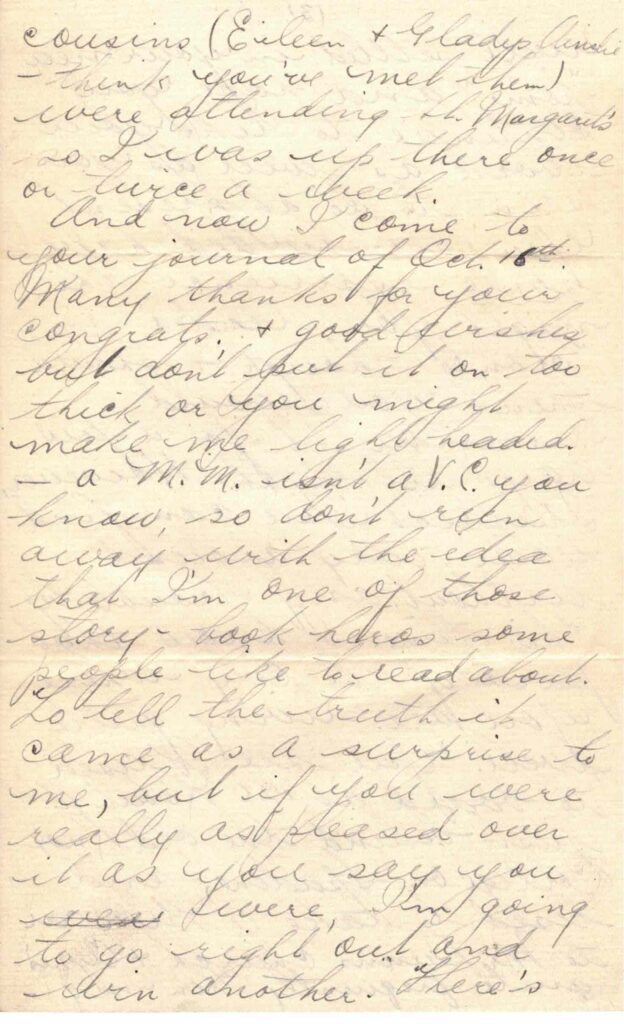 cousins (Eileen & Gladys Ainslie
- think you've met them)
were attending St. Margaret's
so I was up there once
or twice a week.
And now I come to
your journal of Oct. 16th.
Many thanks for your
congrats. & good wishes
but don't put it on too
thick or you might
make me light headed.
- a M.M. isn't a V.C. you
know, so don't run
away with the idea
that I'm one of those
story-book heros some
people like to read about.
To tell the truth it
came as a surprise to
me, but if you were
really as pleased over
it as you say you
were, I'm going
to go right out and
win another. There's